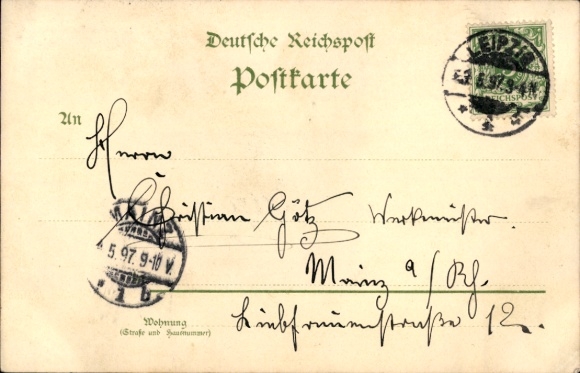 Deutsche Reichspost
Postkarte
LEIPZIG
5.97. 9-
REICHSPOST
An
Herrn
Christian Götz Werkmeister.
MAINZ
5.97. 9-10 V.
1 b
Mainz a/Rh.
Liebfrauenstraße 12.
Wohnung
(Straße und Hausnummer)